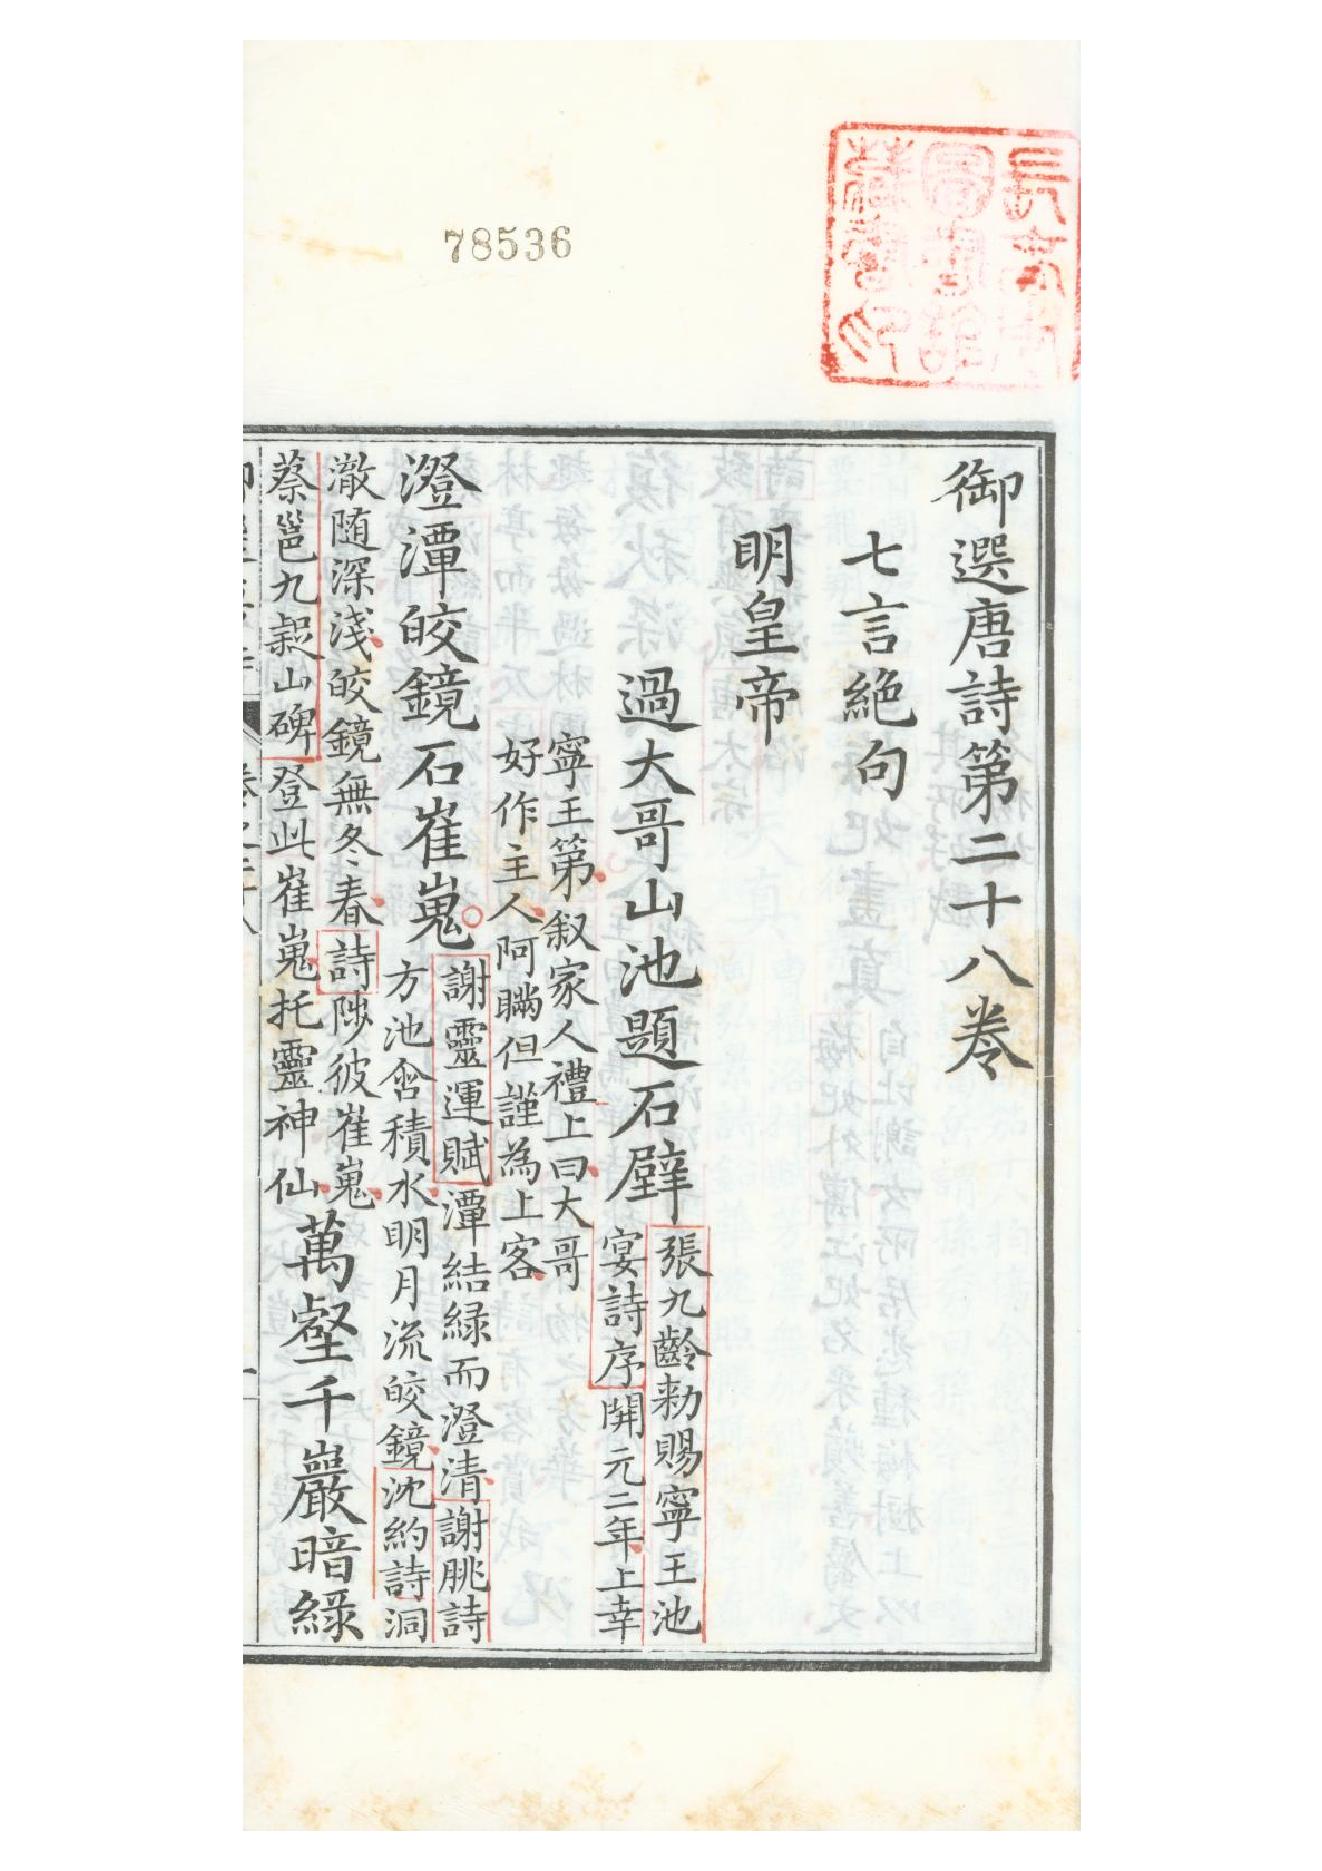 78536
御選唐詩第二十八卷
七言絶句
明皇帝
過大哥山池題石壁
張九齡勑賜寧王池
宴詩序開元二年上幸
寧王第叙家人禮上曰大哥
好作主人阿瞞但謹為上客
澄潭皎鏡石崔嵬
謝靈運賦潭結綠而澄清謝朓詩
方池含積水明月流皎鏡沈約詩洞
澈隨深淺皎鏡無冬春詩陟彼崔嵬
蔡邕九疑山碑登此崔嵬托靈神仙
萬壑千巖暗綠